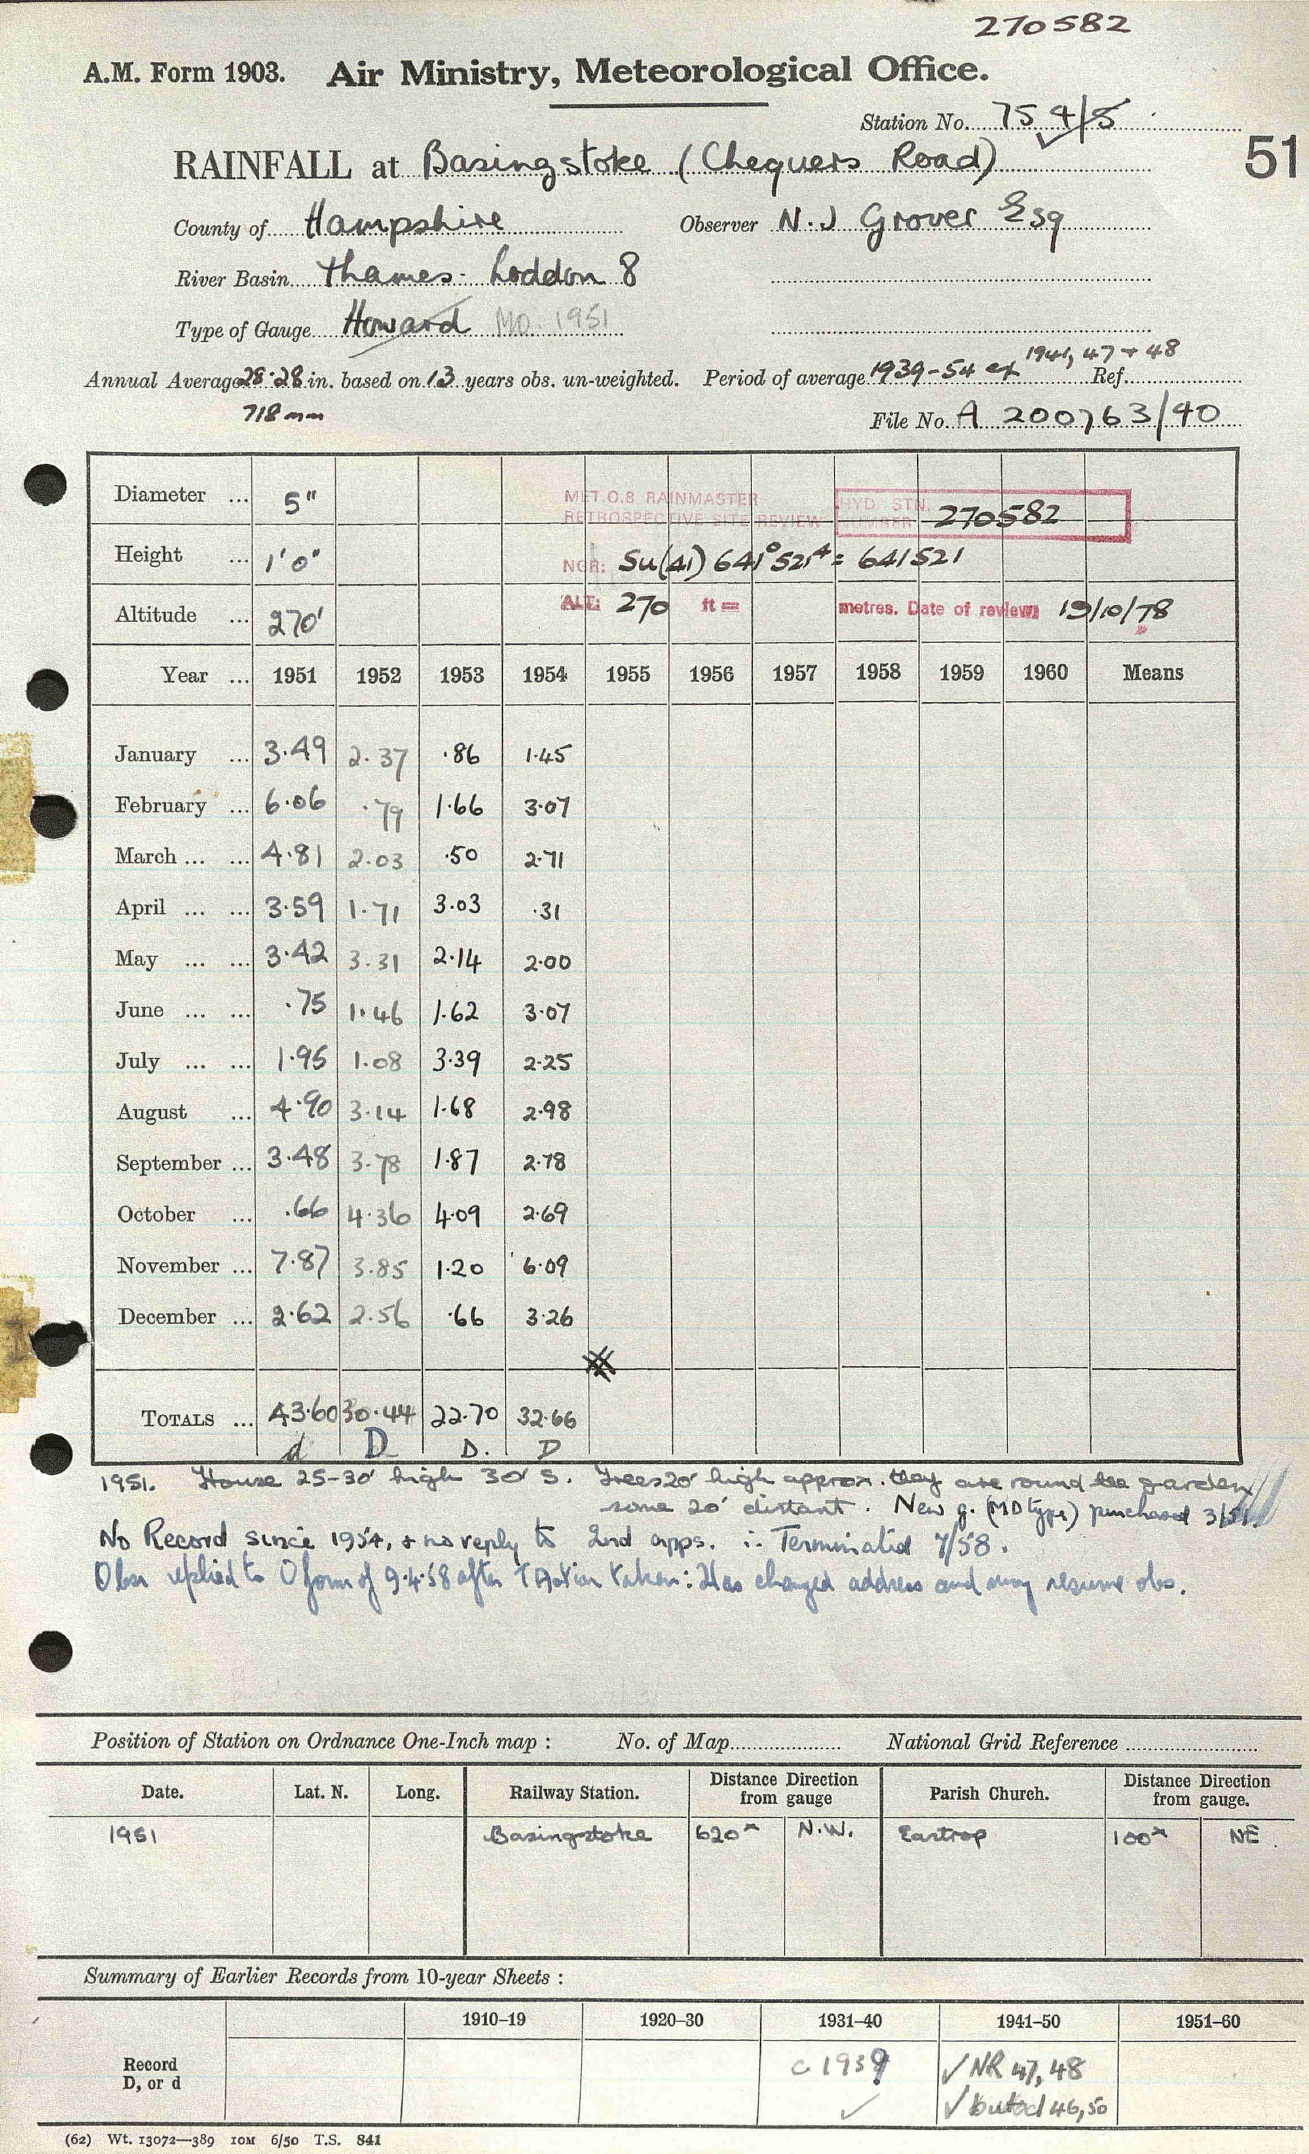 270582
A.M. Form 1903. Air Ministry, Meteorological Office.
Station No. 75 4/5
RAINFALL at Basingstoke (Chequers Road)
51
County of Hampshire Observer N.J Grover Esq
River Basin Thames - Loddon 8
Type of Gauge Howard MO. 1951
Annual Average 28.28 in. based on 13 years obs. un-weighted. Period of average 1939-54 ex 1941, 47 + 48 Ref.
718 mm
File No. A 200763/40
Diameter ... 5"
MET.O.8 RAINMASTER
RETROSPECTIVE SITE REVIEW
HYD STN. NUMBER 270582
Height ... 1'0"
NGR: SU(41) 641⁰521⁴ = 641521
Altitude ... 270'
ALT: 270 ft = metres. Date of review: 19/10/78
Year ... 1951 1952 1953 1954 1955 1956 1957 1958 1959 1960 Means
January ... 3.49 2.37 .86 1.45
February ... 6.06 .79 1.66 3.07
March ... ... 4.81 2.03 .50 2.71
April ... ... 3.59 1.71 3.03 .31
May ... ... 3.42 3.31 2.14 2.00
June ... ... .75 1.46 1.62 3.07
July ... ... 1.95 1.08 3.39 2.25
August ... 4.90 3.14 1.68 2.98
September ... 3.48 3.78 1.87 2.78
October ... .66 4.36 4.09 2.69
November ... 7.87 3.85 1.20 6.09
December ... 2.62 2.56 .66 3.26
TOTALS ... 43.60 30.44 22.70 32.66
d D D. D
1951. House 25-30' high 30' S. Trees 20' high approx. they are round the garden
some 20' distant. New g. (MO type) purchased 3/51.
No Record since 1954, & no reply to 2nd apps. ∴ Terminated 7/58.
Obsr replied to O form of 9.4.58 after taken: Has changed address and may resume obs.
Position of Station on Ordnance One-Inch map : No. of Map National Grid Reference
Date. Lat. N. Long. Railway Station. Distance Direction from gauge Parish Church. Distance Direction from gauge.
1951 Basingstoke 620ˣ N.W. Eastrop 100ˣ NE.
Summary of Earlier Records from 10-year Sheets :
1910–19 1920–30 1931–40 1941–50 1951–60
Record
D, or d
c 1939 ✓ NR 47, 48
✓ ✓ 46, 50
(62) Wt. 13072—389 10M 6/50 T.S. 841